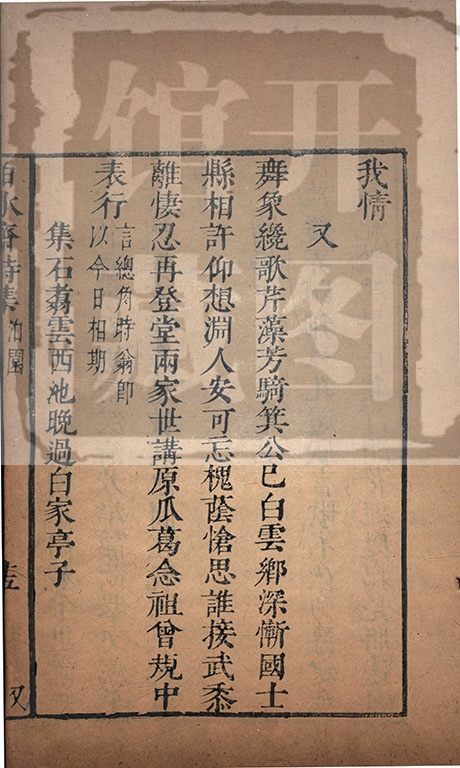 我情
又
舞象纔歌芹藻芳騎箕公已白雲鄉深慚國士
縣相許仰想淵人安可忘槐蔭愴思誰接武黍
離悽忍再登堂兩家世講原瓜葛念祖曾規中
表行
言總角時翁即
以今日相期
集石翥雲西池晚過白家亭子
白水齋詩集
泊園
又
开
图
馆